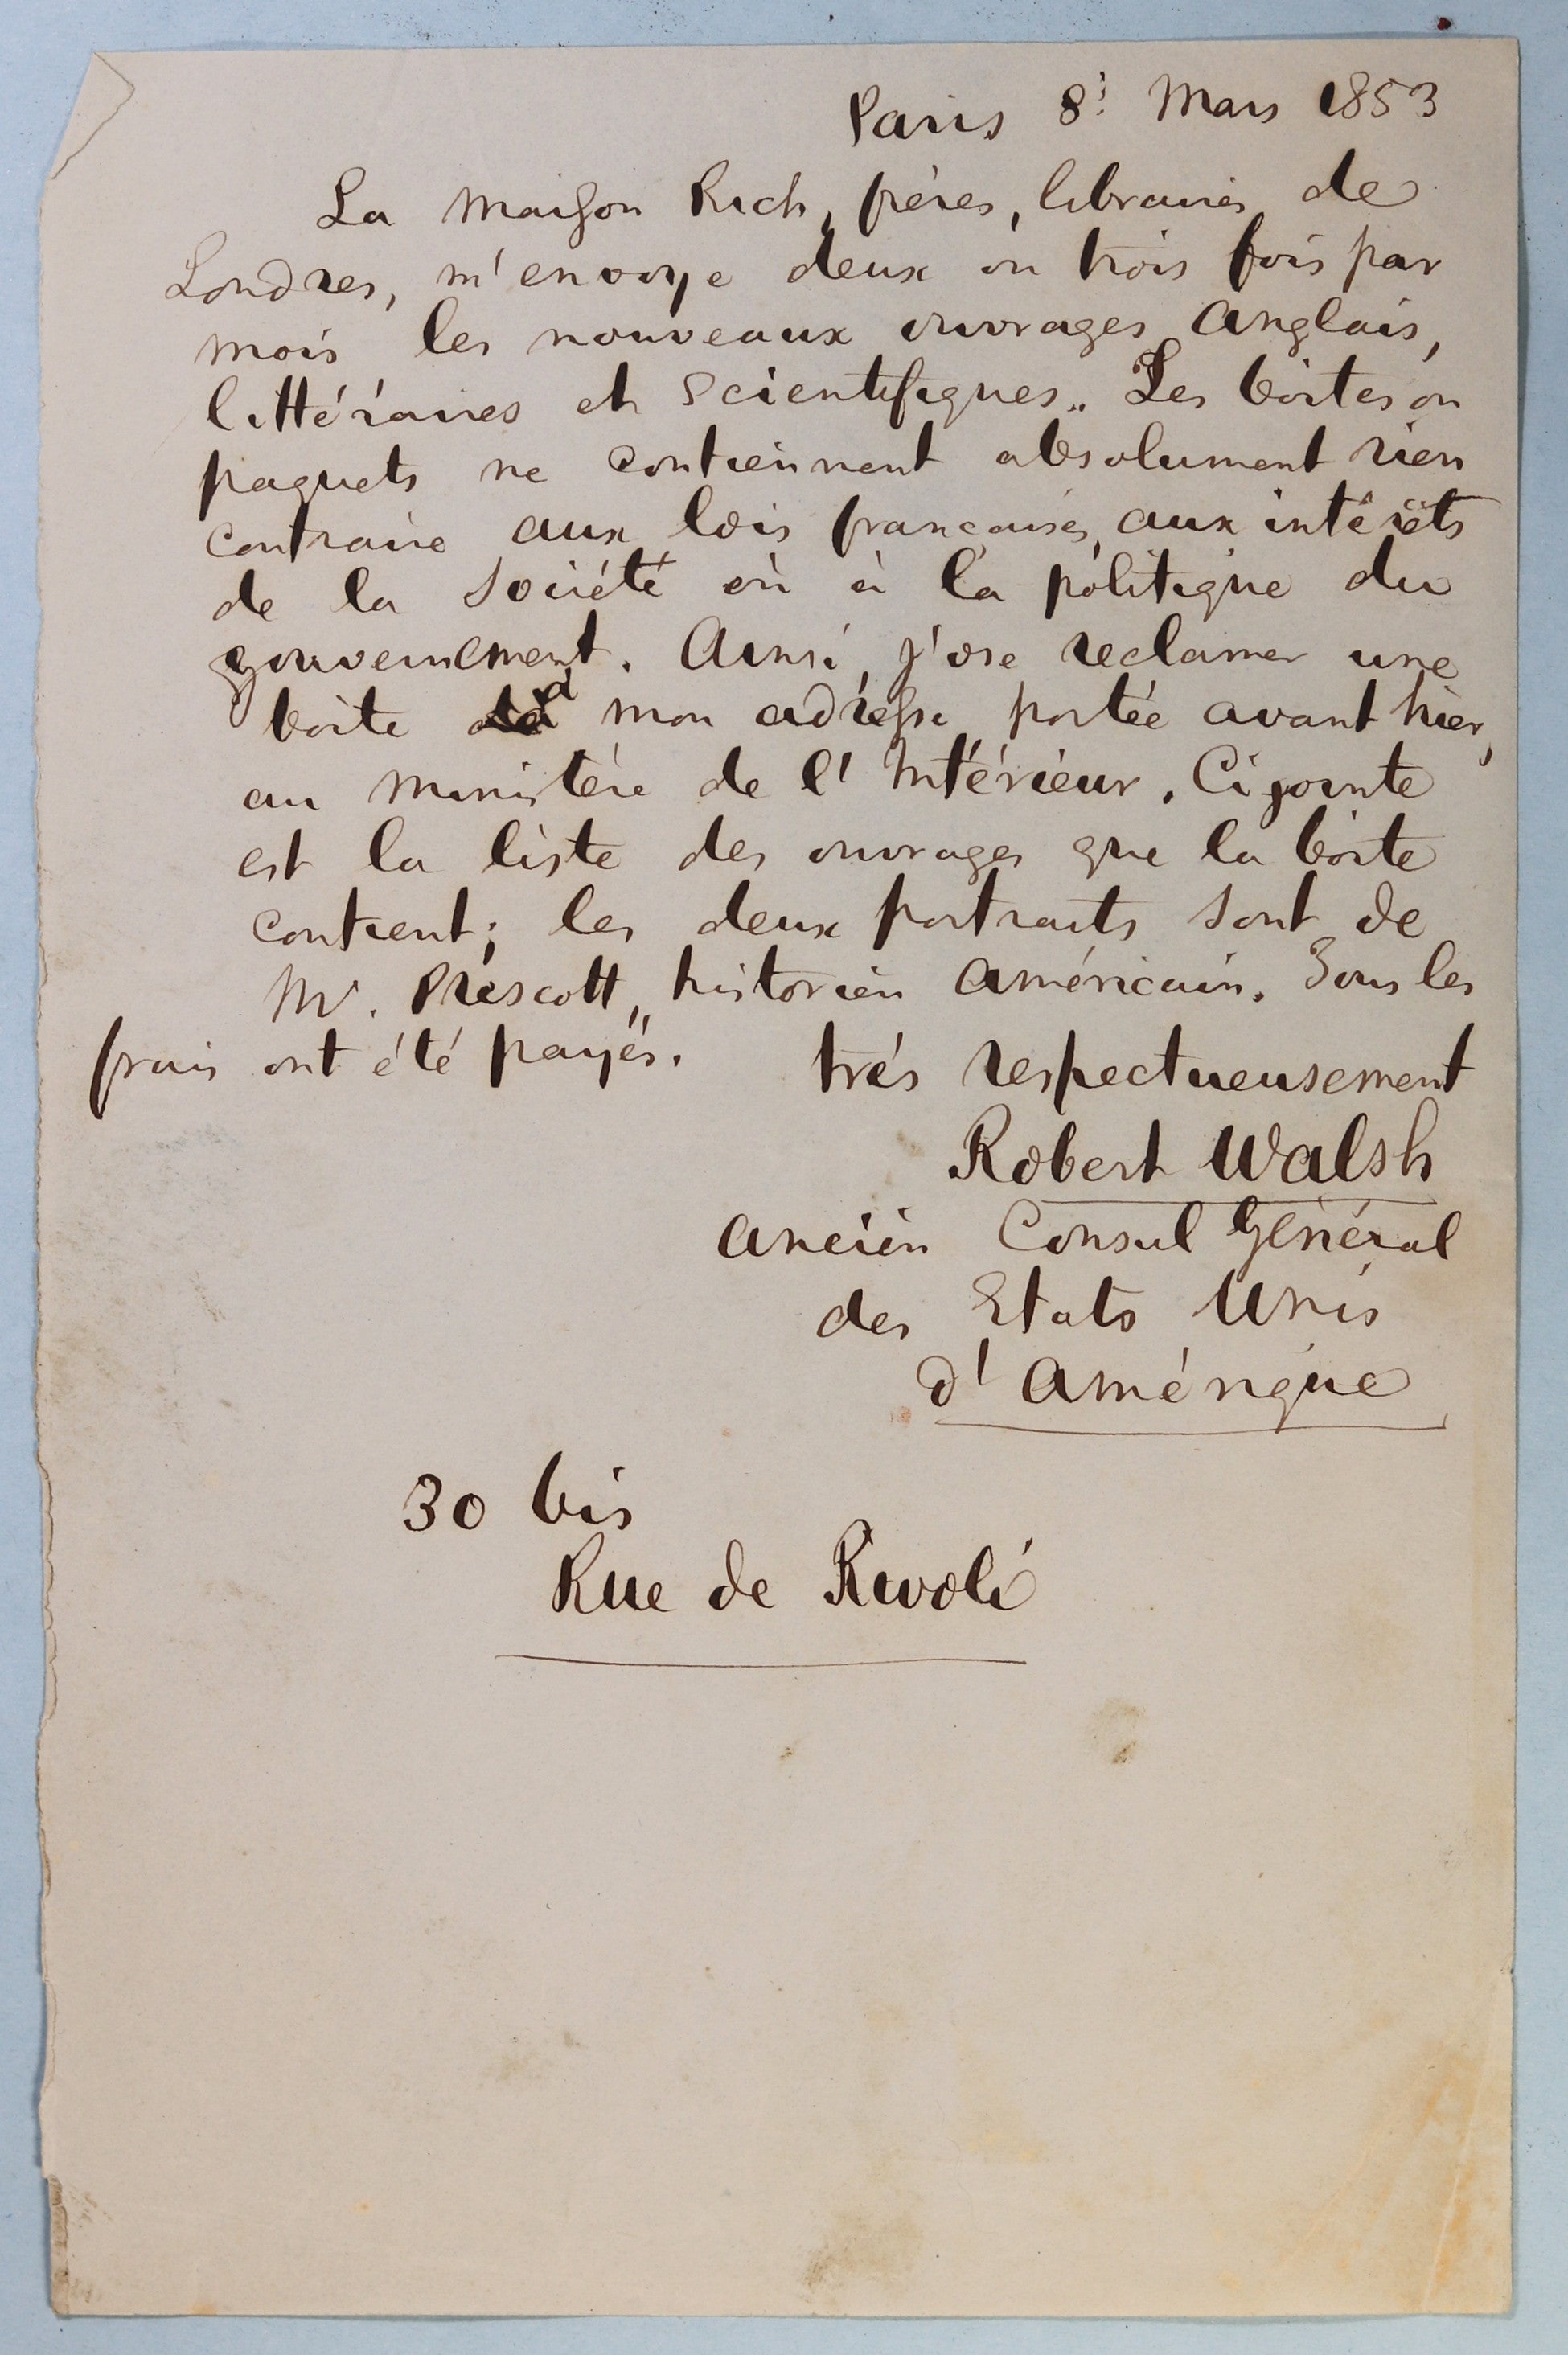 Paris 8: Mars 1853
La Maison Rich, frères, libraires de
Londres, m'envoye deux ou trois fois par
mois les nouveaux ouvrages Anglais,
littéraires et Scientifiques. Les boites ou
paquets ne contiennent absolument rien
contraire aux lois françaises, aux intérêts
de la Société où à la politique du
gouvernement. Ainsi, j'ose reclamer une
boite à mon adresse portée avant hier,
au ministère de l'Intérieur. Cijointe
est la liste des ouvrages que la boite
contient; les deux portraits sont de
Mr. Prescott, historien Américain. Tous les
frais ont été payés.
très respectueusement
Robert Walsh
ancien Consul Général
des Etats Unis
d'Amérique
30 bis
Rue de Rivoli